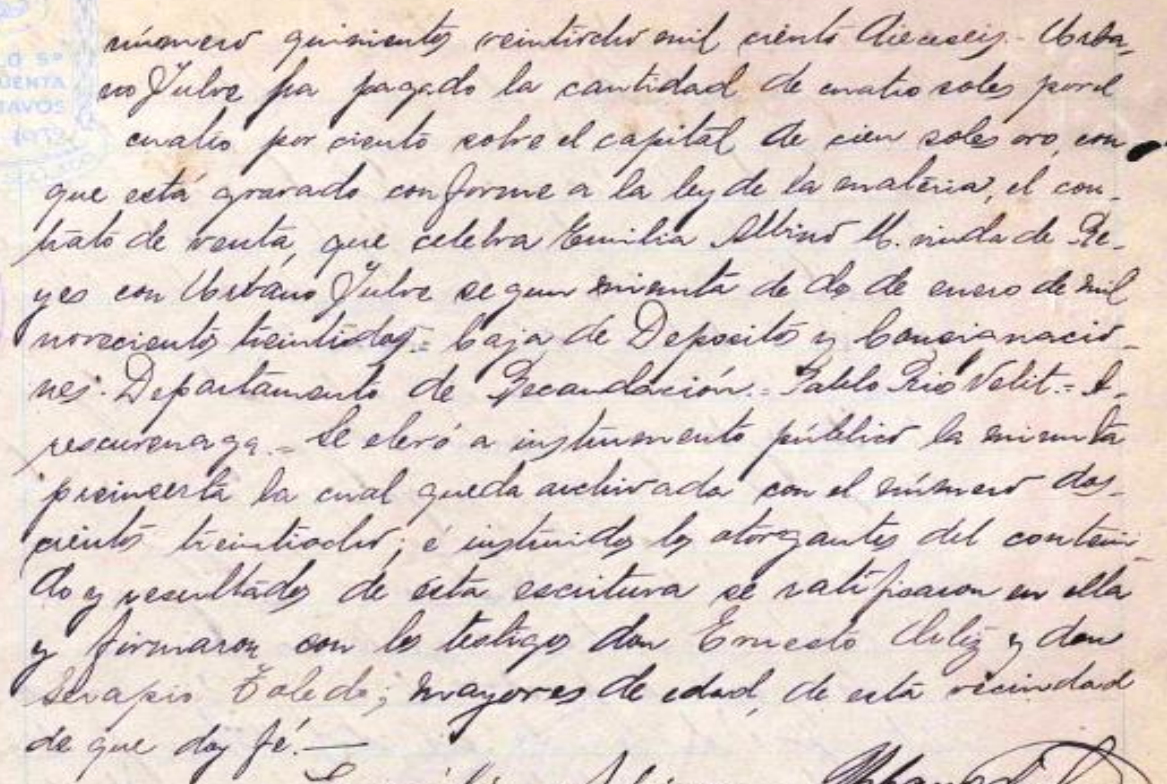 número quinientos veintiocho mil ciento dieciseis.- Urba-
no Julve ha pagado la cantidad de cuatro soles por el
cuatro por ciento sobre el capital de cien soles oro, con
que está gravado conforme a la ley de la materia, el con-
trato de venta, que celebra Emilia Albino M. viuda de Re-
yes con Urbano Julve segun minuta de dos de enero de mil
novecientos treintidos.= Caja de Depositos y Consignacio-
nes. Departamento de Recaudación.= Pablo Rio Velit.=
Se elevó a instrumento público la minuta
preinserta la cual queda archivada con el número dos-
cientos treintiocho; é instruidos los otorgantes del conteni-
do y resultados de esta escritura se ratificaron en ella
y firmaron con los testigos don Ernesto Ortiz y don
Serapio Toledo; mayores de edad, de esta vecindad
de que doy fé.—